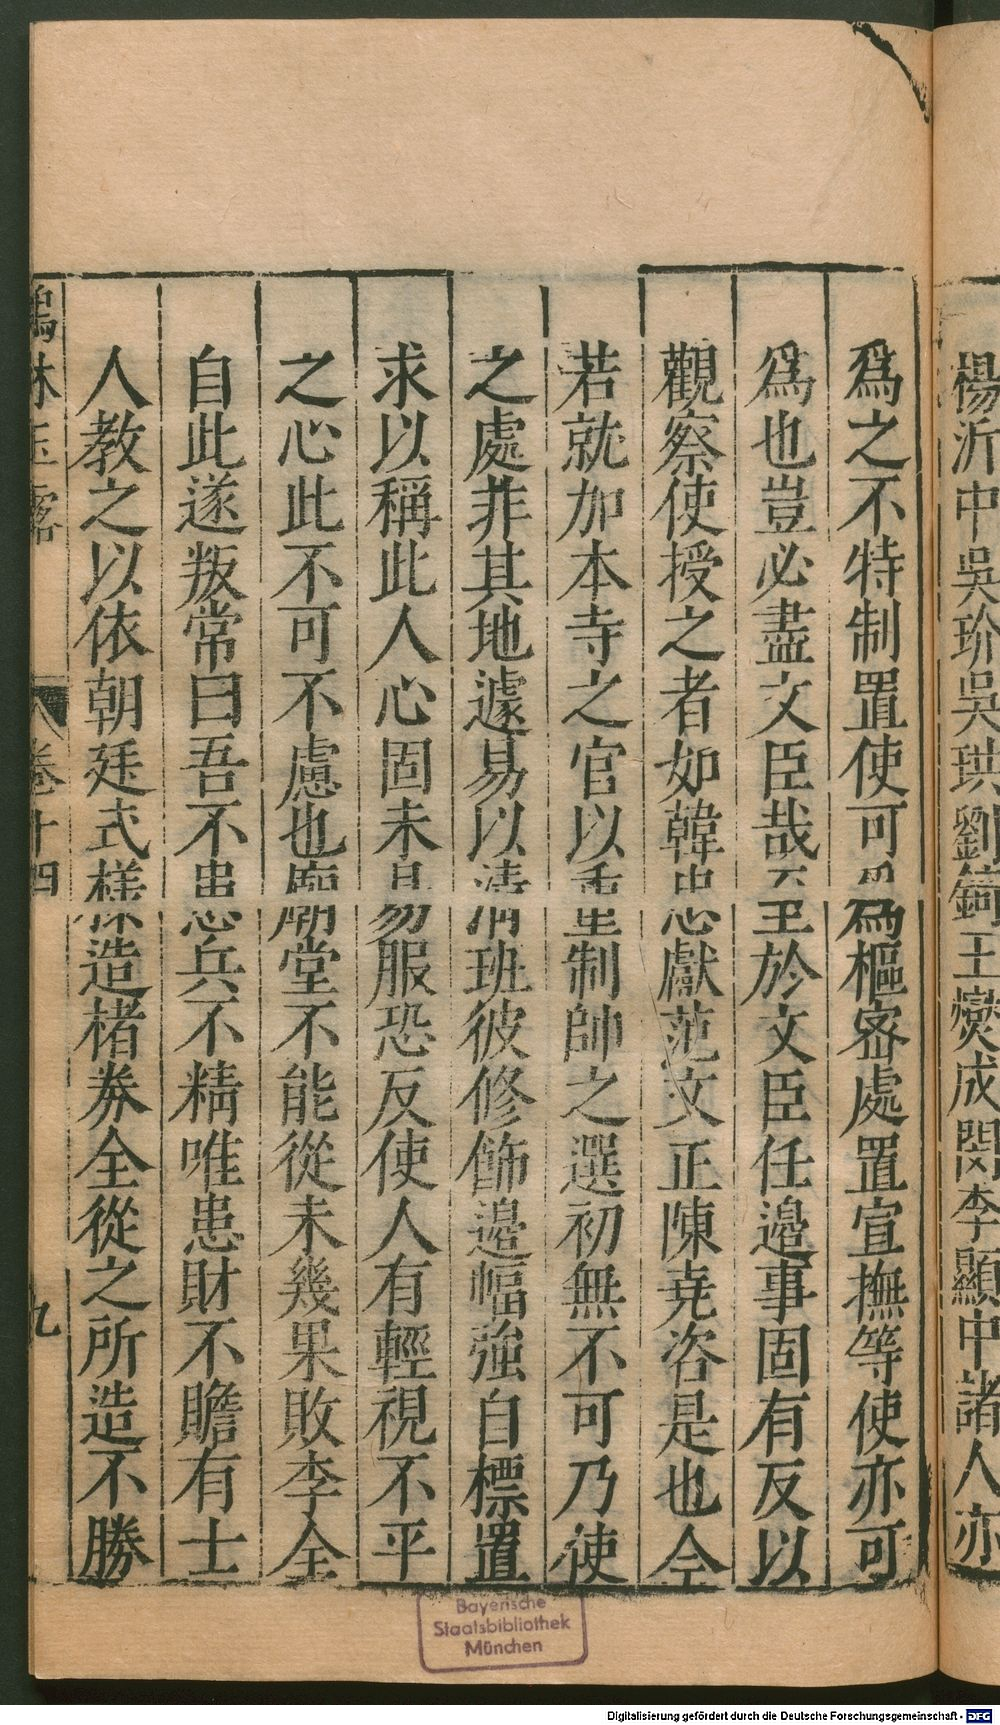 楊沂中吳玠吳璘劉錡王燮成閔李顯忠諸人亦
爲之不特制置使可爲樞密處置宣撫等使亦可
爲也豈必盡文臣哉至於文臣任邊事固有反以
觀察使授之者如韓忠獻范文正陳堯咨是也今
若就加本寺之官以重制帥之選初無不可乃使
之處非其地遽易以清班彼修飾邊幅強自標置
求以稱此人心固未易服恐反使人有輕視不平
之心此不可不慮也廟堂不能從未幾果敗李全
自此遂叛常曰吾不患兵不精唯患財不贍有士
人教之以依朝廷式樣造楮券全從之所造不勝
鶴林玉露
卷十四
九
Bayerische
Staatsbibliothek
München
Digitalisierung gefördert durch die Deutsche Forschungsgemeinschaft - DFG